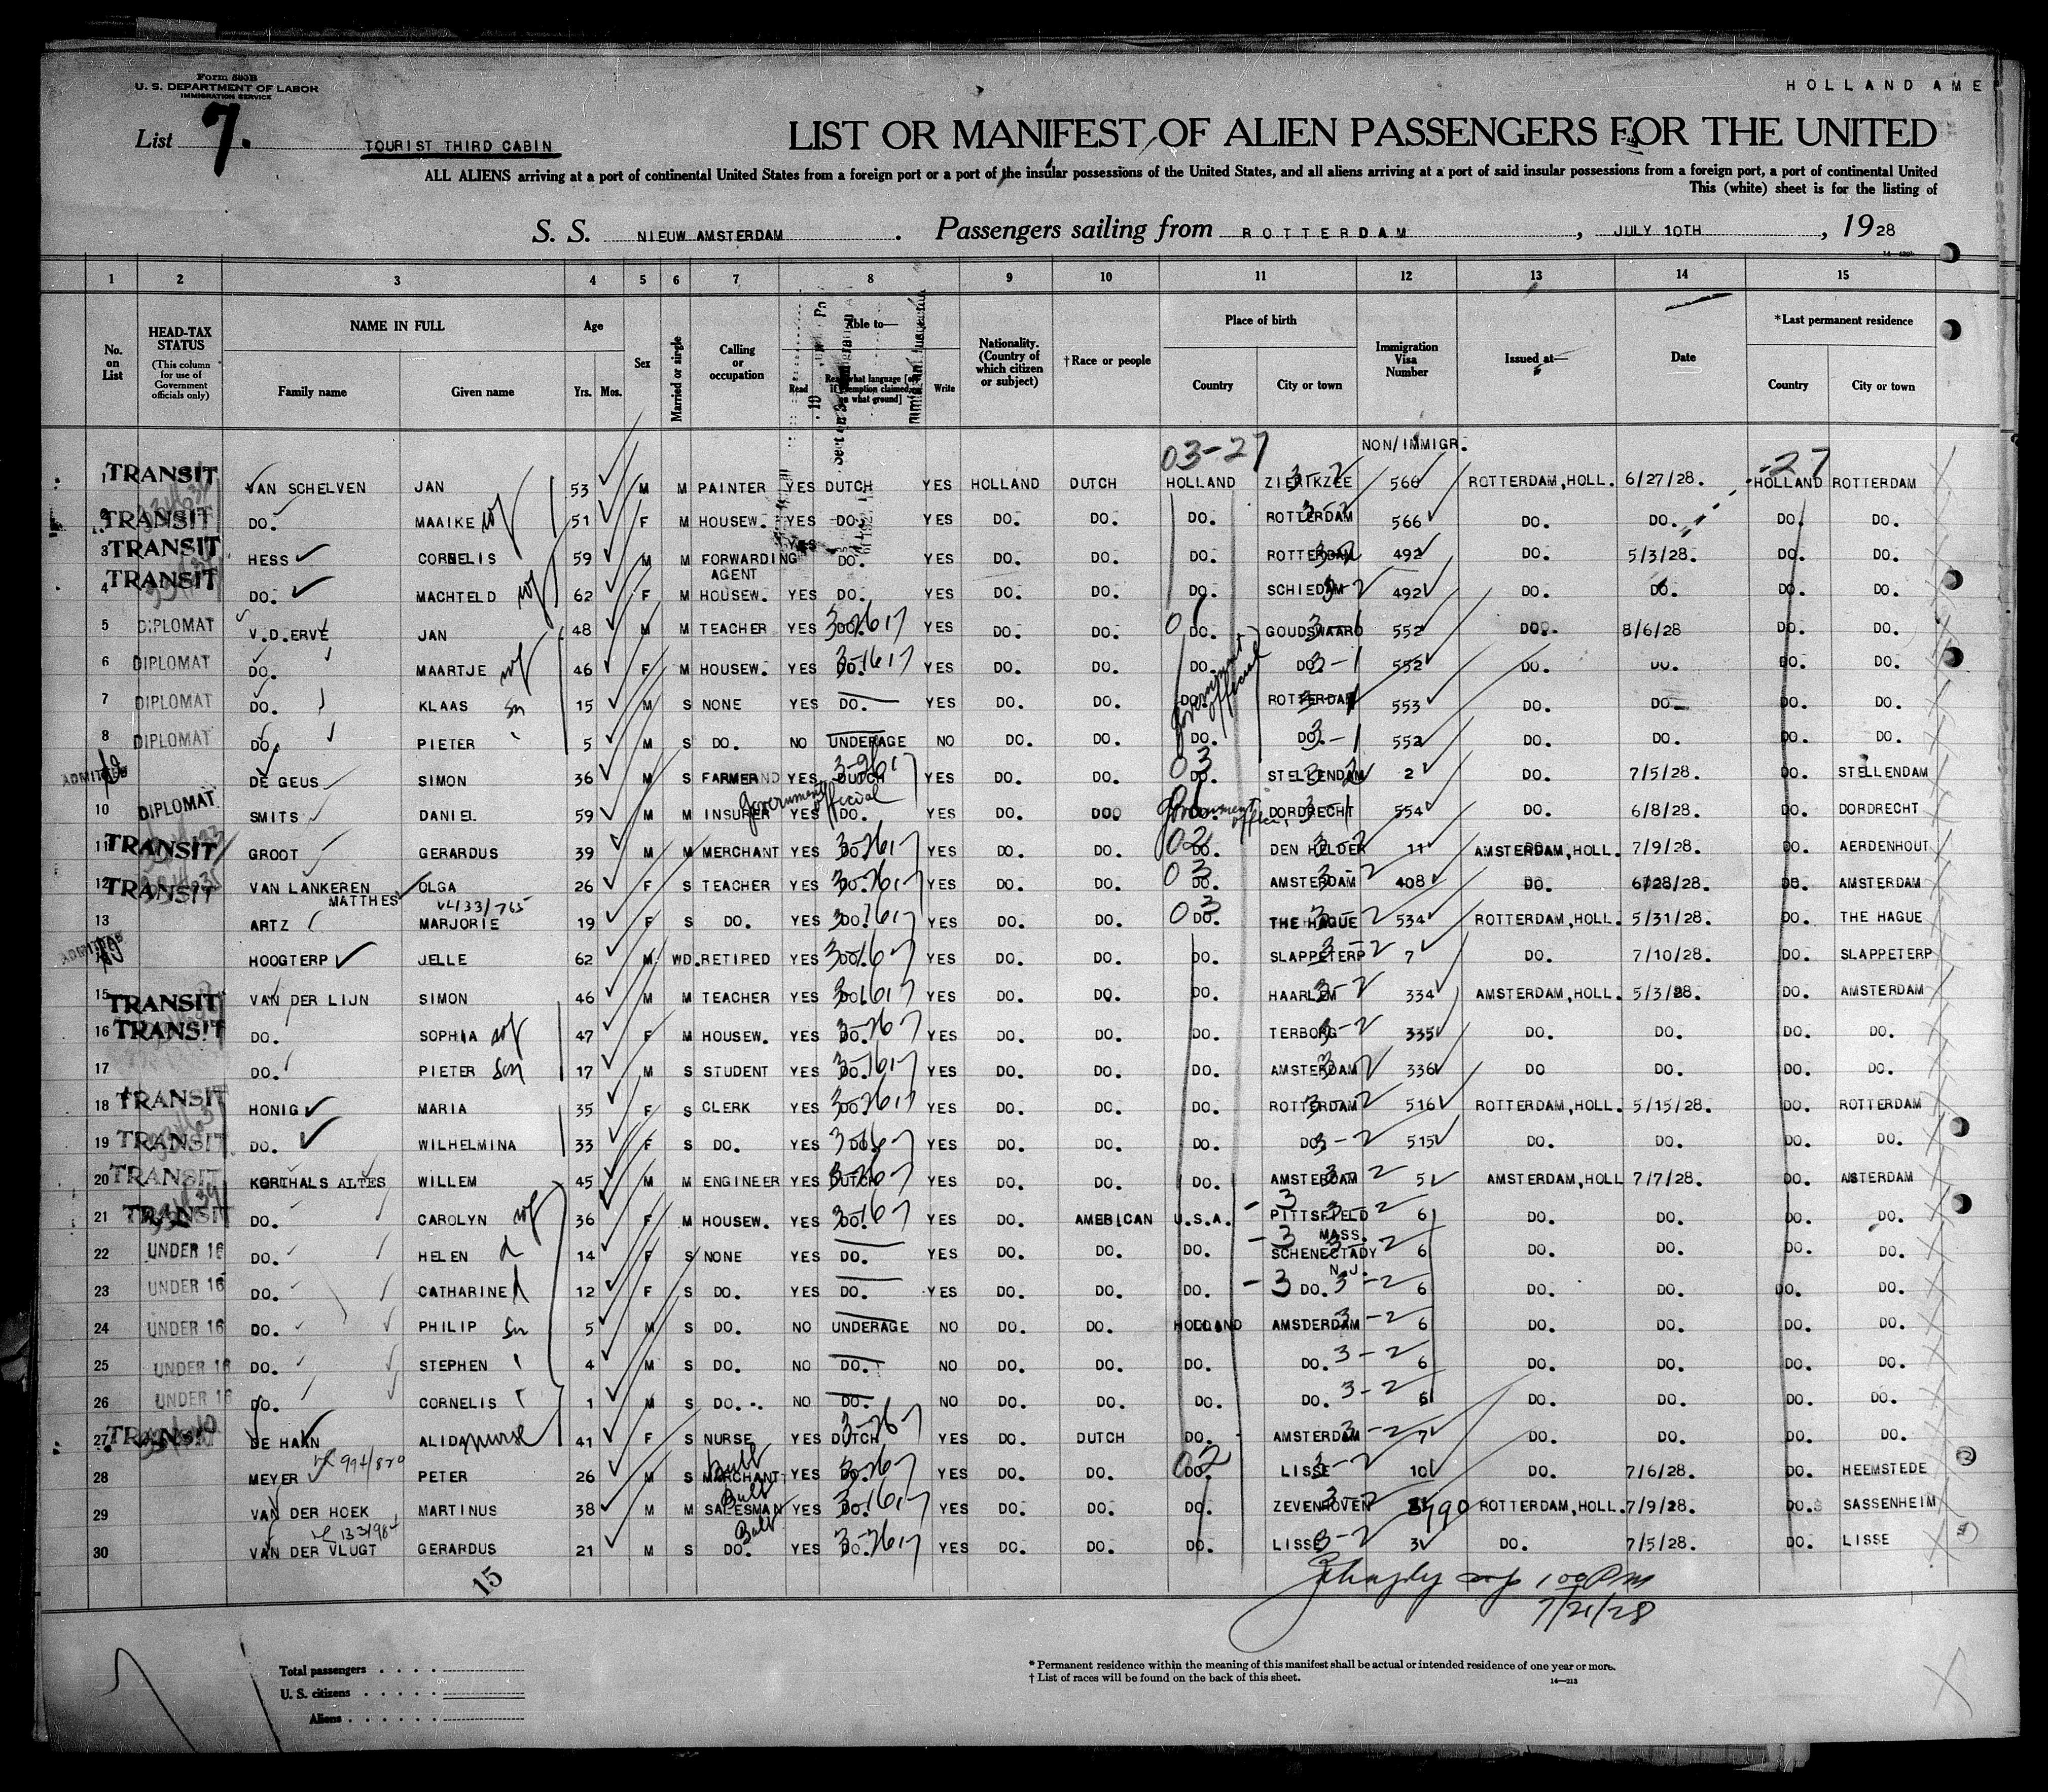 Form 500B
U. S. DEPARTMENT OF LABOR
IMMIGRATION SERVICE
HOLLAND AME
List 7. TOURIST THIRD CABIN
LIST OR MANIFEST OF ALIEN PASSENGERS FOR THE UNITED
ALL ALIENS arriving at a port of continental United States from a foreign port or a port of the insular possessions of the United States, and all aliens arriving at a port of said insular possessions from a foreign port, a port of continental United
This (white) sheet is for the listing of
S. S. NIEUW AMSTERDAM. Passengers sailing from ROTTERDAM, JULY 10TH, 1928
1 2 3 4 5 6 7 8 9 10 11 12 13 14 15
No. on List
HEAD-TAX STATUS (This column for use of Government officials only)
NAME IN FULL Family name Given name
Age Yrs. Mos.
Sex
Married or single
Calling or occupation
Able to— Read Read what language [or, if exemption claimed, on what ground] Write
Nationality. (Country of which citizen or subject)
†Race or people
Place of birth Country City or town
Immigration Visa Number
Issued at—
Date
*Last permanent residence Country City or town
03-27 NON/IMMIGR. -27
1 TRANSIT VAN SCHELVEN JAN 53 M M PAINTER YES DUTCH YES HOLLAND DUTCH HOLLAND ZIERIKZEE 3-2 566 ROTTERDAM,HOLL. 6/27/28. HOLLAND ROTTERDAM
2 TRANSIT DO. MAAIKE wf 51 F M HOUSEW. YES DO. YES DO. DO. DO. ROTTERDAM 3-2 566 DO. DO. DO. DO.
3 TRANSIT HESS CORNELIS 59 M M FORWARDING AGENT YES DO. YES DO. DO. DO. ROTTERDAM 3-2 492 DO. 5/3/28. DO. DO.
4 TRANSIT DO. MACHTELD wf 62 F M HOUSEW. YES DO. YES DO. DO. DO. SCHIEDAM 3-2 492 DO. DO. DO. DO.
5 DIPLOMAT V.D.ERVE JAN 48 M M TEACHER YES DO. YES DO. DO. DO. GOUDSWAARD 3-1 552 DO. 8/6/28 DO. DO.
6 DIPLOMAT DO. MAARTJE wf 46 F M HOUSEW. YES DO. YES DO. DO. DO. DO. 3-1 552 DO. DO. DO. DO.
7 DIPLOMAT DO. KLAAS sn 15 M S NONE YES DO. YES DO. DO. DO. ROTTERDAM 3-1 553 DO. DO. DO. DO.
Government official
8 DIPLOMAT DO. PIETER 5 M S DO. NO UNDERAGE NO DO. DO. DO. DO. 3-1 552 DO. DO. DO. DO.
ADMITTED DE GEUS SIMON 36 M S FARMER YES DUTCH YES DO. DO. 03 DO. STELLENDAM 3-2 2 DO. 7/5/28. DO. STELLENDAM
10 DIPLOMAT SMITS DANIEL 59 M M INSURER Government official YES DO. YES DO. DO. DO. DORDRECHT 3-1 554 DO. 6/8/28. DO. DORDRECHT
11 TRANSIT GROOT GERARDUS 39 M M MERCHANT YES DO. YES DO. DO. DO. DEN HELDER 11 AMSTERDAM,HOLL. 7/9/28. DO. AERDENHOUT
12 TRANSIT VAN LANKEREN MATTHES OLGA 26 F S TEACHER YES DO. YES DO. DO. 03 DO. AMSTERDAM 3-2 408 DO. 6/28/28. DO. AMSTERDAM
13 ARTZ MARJORIE 19 F S DO. YES DO. YES DO. DO. 03 DO. THE HAGUE 3-2 534 ROTTERDAM,HOLL. 5/31/28. DO. THE HAGUE
ADMITTED HOOGTERP JELLE 62 M WD. RETIRED YES DO. YES DO. DO. DO. SLAPPETERP 3-2 7 DO. 7/10/28. DO. SLAPPETERP
15 TRANSIT VAN DER LIJN SIMON 46 M M TEACHER YES DO. YES DO. DO. DO. HAARLEM 3-2 334 AMSTERDAM,HOLL. 5/3/28. DO. AMSTERDAM
16 TRANSIT DO. SOPHIA wf 47 F M HOUSEW. YES DO. YES DO. DO. DO. TERBORG 3-2 335 DO. DO. DO. DO.
17 DO. PIETER son 17 M S STUDENT YES DO. YES DO. DO. DO. AMSTERDAM 336 DO DO. DO. DO.
18 TRANSIT HONIG MARIA 35 F S CLERK YES DO. YES DO. DO. DO. ROTTERDAM 3-2 516 ROTTERDAM,HOLL. 5/15/28. DO. ROTTERDAM
19 TRANSIT DO. WILHELMINA 33 F S DO. YES DO. YES DO. DO. DO. DO. 3-2 515 DO. DO. DO. DO.
20 TRANSIT KORTHALS ALTES WILLEM 45 M M ENGINEER YES DUTCH YES DO. DO. DO. AMSTERDAM 3-2 5 AMSTERDAM,HOLL 7/7/28. DO. AMSTERDAM
21 TRANSIT DO. CAROLYN wf 36 F M HOUSEW. YES DO. YES DO. AMERICAN U.S.A. -3 PITTSFIELD MASS. 3-2 6 DO. DO. DO. DO.
22 UNDER 16 DO. HELEN d 14 F S NONE YES DO. YES DO. DO. DO. -3 SCHENECTADY N.J. 3-2 6 DO. DO. DO. DO.
23 UNDER 16 DO. CATHARINE d 12 F S DO. YES DO. YES DO. DO. DO. -3 DO. 3-2 6 DO. DO. DO. DO.
24 UNDER 16 DO. PHILIP sn 5 M S DO. NO UNDERAGE NO DO. DO. HOLLAND AMSDERDAM 3-2 6 DO. DO. DO. DO.
25 UNDER 16 DO. STEPHEN 4 M S DO. NO DO. NO DO. DO. DO. DO. 3-2 6 DO. DO. DO. DO.
26 UNDER 16 DO. CORNELIS 1 M S DO. NO DO. NO DO. DO. DO. DO. 3-2 6 DO. DO. DO. DO.
27 TRANSIT DE HAAN ALIDA nurse 41 F S NURSE YES DUTCH YES DO. DUTCH DO. AMSTERDAM 3-2 7 DO. DO. DO. DO.
28 MEYER PETER 26 M S Bulb MERCHANT YES DO. YES DO. DO. 02 DO. LISSE 3-2 10 DO. 7/6/28. DO. HEEMSTEDE
29 VAN DER HOEK MARTINUS 38 M M Bulb SALESMAN YES DO. YES DO. DO. DO. ZEVENHOVEN 3-2 ROTTERDAM,HOLL. 7/9/28. DO. SASSENHEIM
30 VAN DER VLUGT GERARDUS 21 M S Bulb DO. YES DO. YES DO. DO. DO. LISSE 3-2 3 DO. 7/5/28. DO. LISSE
15
1 00 PM
7/21/28
Total passengers
U. S. citizens
Aliens
* Permanent residence within the meaning of this manifest shall be actual or intended residence of one year or more.
† List of races will be found on the back of this sheet.
14—213